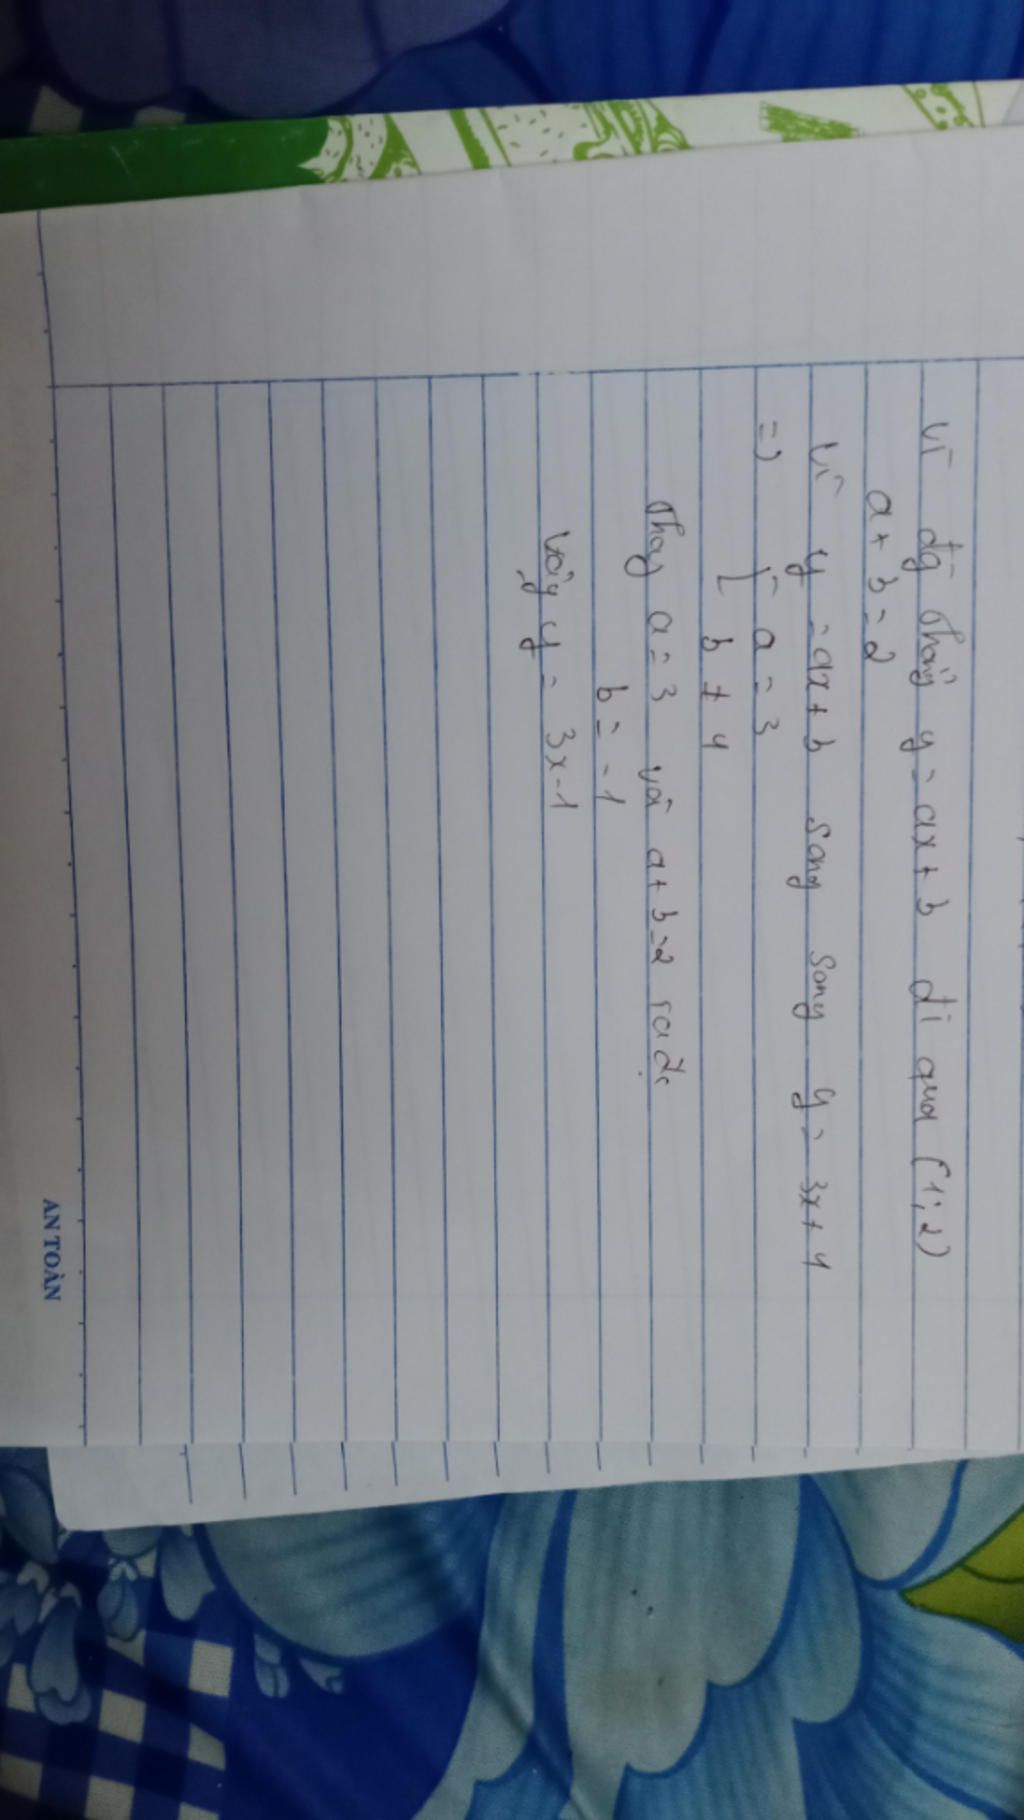 Vì đg thẳng y = ax + b đi qua (1; 2)
a + b = 2
Vì y = ax + b song song y = 3x + 4
=> { a = 3
b ≠ 4
Thay a = 3 và a + b = 2 ta đc
b = -1
Vậy y = 3x - 1
AN TOÀN